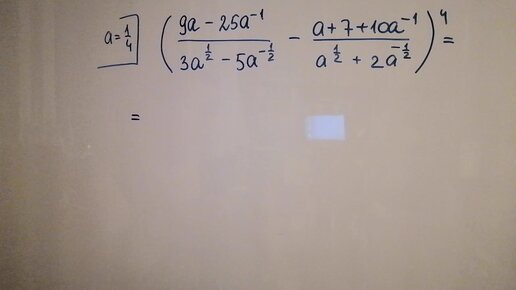 a = 1/4 ( (9a - 25a^-1)/(3a^1/2 - 5a^-1/2) - (a + 7 + 10a^-1)/(a^1/2 + 2a^-1/2) )^4 =
=